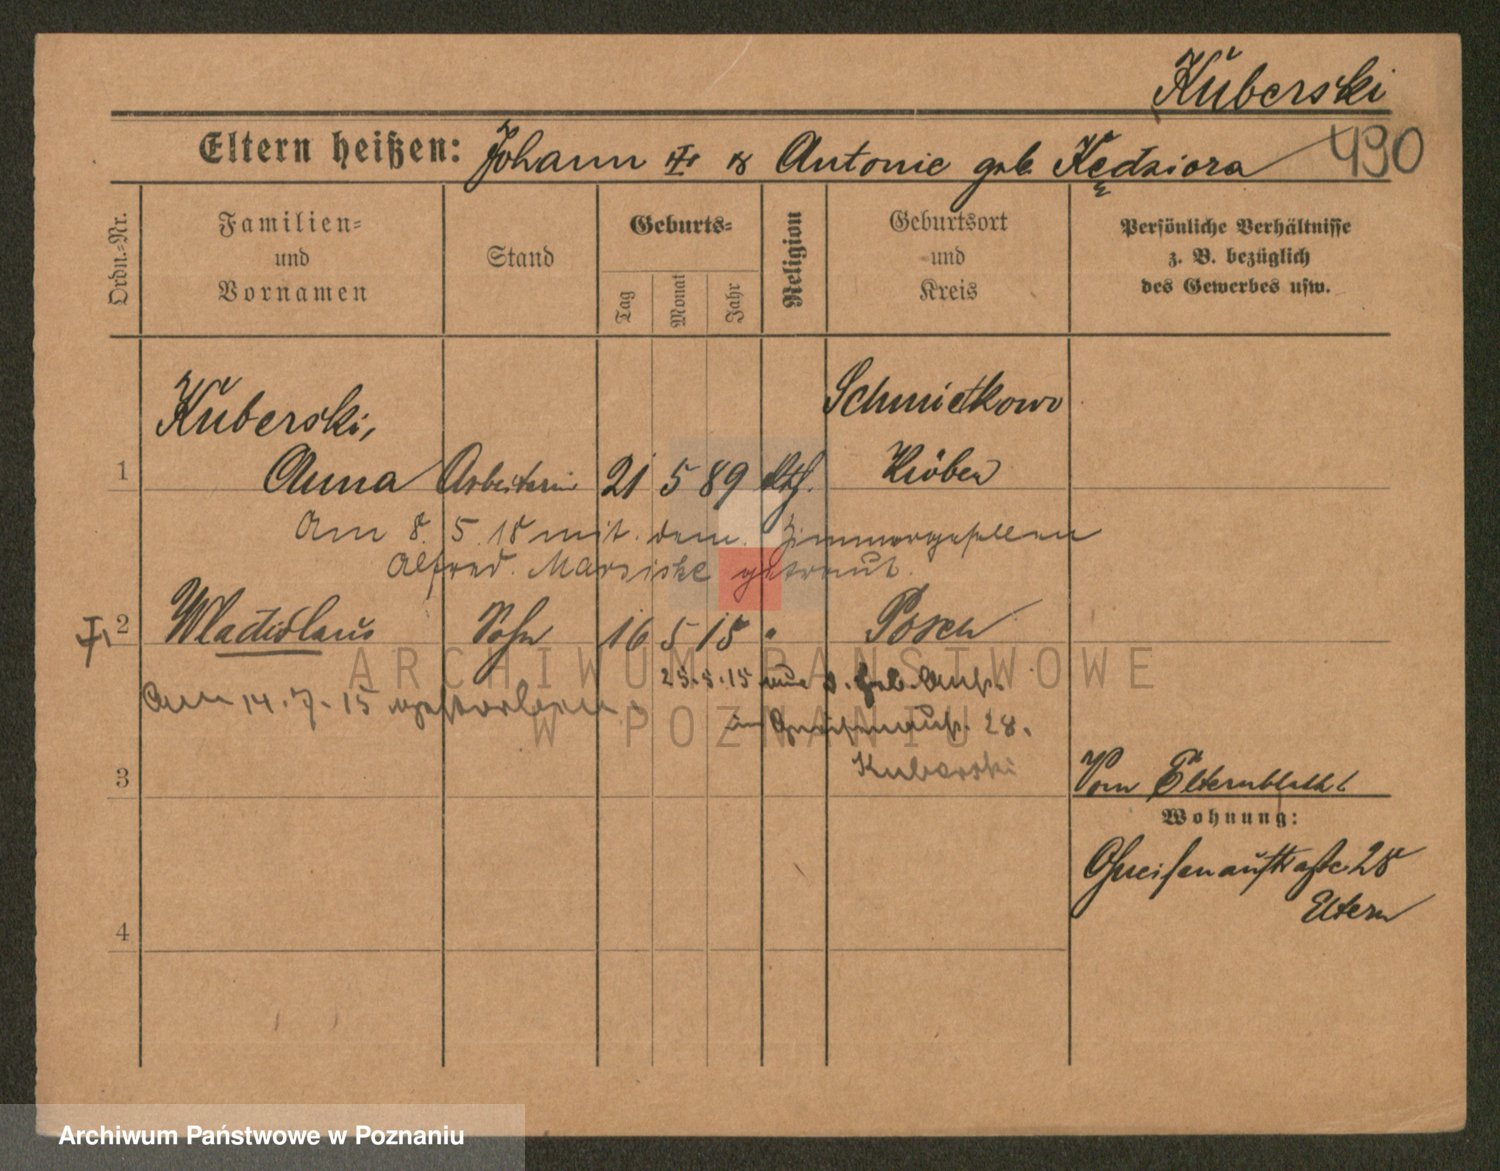 Kuberski
490
Eltern heißen: Johann & Antonie geb. Kędziora
Ordn.-Nr.
Familien- und Vornamen
Stand
Geburts-
Tag
Monat
Jahr
Religion
Geburtsort und Kreis
Persönliche Verhältnisse z. B. bezüglich des Gewerbes usw.
Kuberski,
Schmietkowo
1 Anna Arbeiterin 21 5 89 kth. Kröben
Am 8. 5. 18 mit dem Zimmergesellen
Alfred Marsiske getraut.
2 Wladislaus Sohn 16 5 15 " Posen
25.5.15 geb.
Am 14.7.15 gestorben.
Gneisenaustr. 28.
Kuberski
3
Vom Elternblatt
Wohnung:
Gneisenaustraße 28
Eltern
4
ARCHIWUM PAŃSTWOWE
W POZNANIU
Archiwum Państwowe w Poznaniu